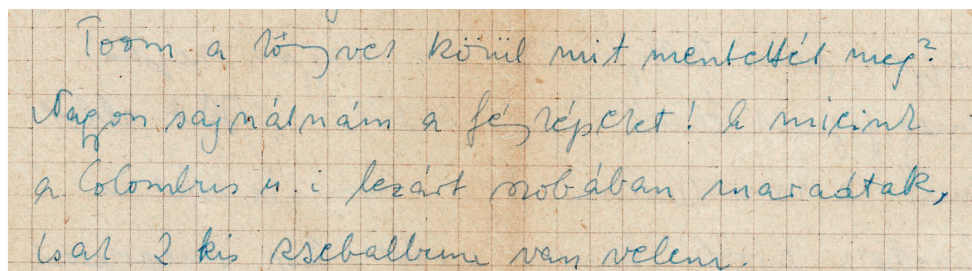 Toom a könyvek körül mit mentettél meg?
Nagyon sajnálnám a fényképeket! A mieink
a Colombus u. i lezárt szobában maradtak,
csak 2 kis zsebalbum van velem.